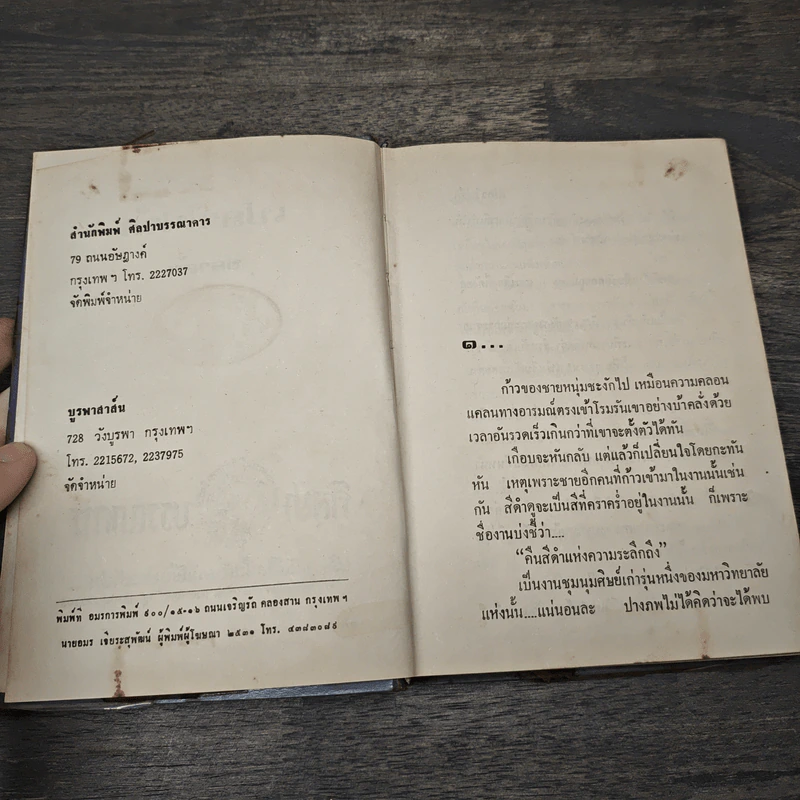 สำนักพิมพ์ ศิลปาบรรณาคาร
79 ถนนอัษฎางค์
กรุงเทพ ฯ โทร. 2227037
จัดพิมพ์จำหน่าย
บูรพาสาส์น
728 วังบูรพา กรุงเทพฯ
โทร. 2215672, 2237975
จัดจำหน่าย
พิมพ์ที่ อมรการพิมพ์ ๙๐๐/๑๕-๑๖ ถนนเจริญรัถ คลองสาน กรุงเทพ ฯ
นายอมร เจียระสุพัฒน์ ผู้พิมพ์ผู้โฆษณา ๒๕๓๑ โทร. ๔๓๘๓๐๘๙
๑...
ก้าวของชายหนุ่มชะงักไป เหมือนความคลอน
แคลนทางอารมณ์ตรงเข้าโรมรันเขาอย่างบ้าคลั่งด้วย
เวลาอันรวดเร็วเกินกว่าที่เขาจะตั้งตัวได้ทัน
เกือบจะหันกลับ แต่แล้วก็เปลี่ยนใจโดยกะทัน
หัน เหตุเพราะชายอีกคนที่ก้าวเข้ามาในงานนั้นเช่น
กัน สีดำดูจะเป็นสีที่คราคร่ำอยู่ในงานนั้น ก็เพราะ
ชื่องานบ่งชี้ว่า....
“คืนสีดำแห่งความระลึกถึง”
เป็นงานชุมนุมศิษย์เก่ารุ่นหนึ่งของมหาวิทยาลัย
แห่งนั้น....แน่นอนละ ปางภพไม่ได้คิดว่าจะได้พบ